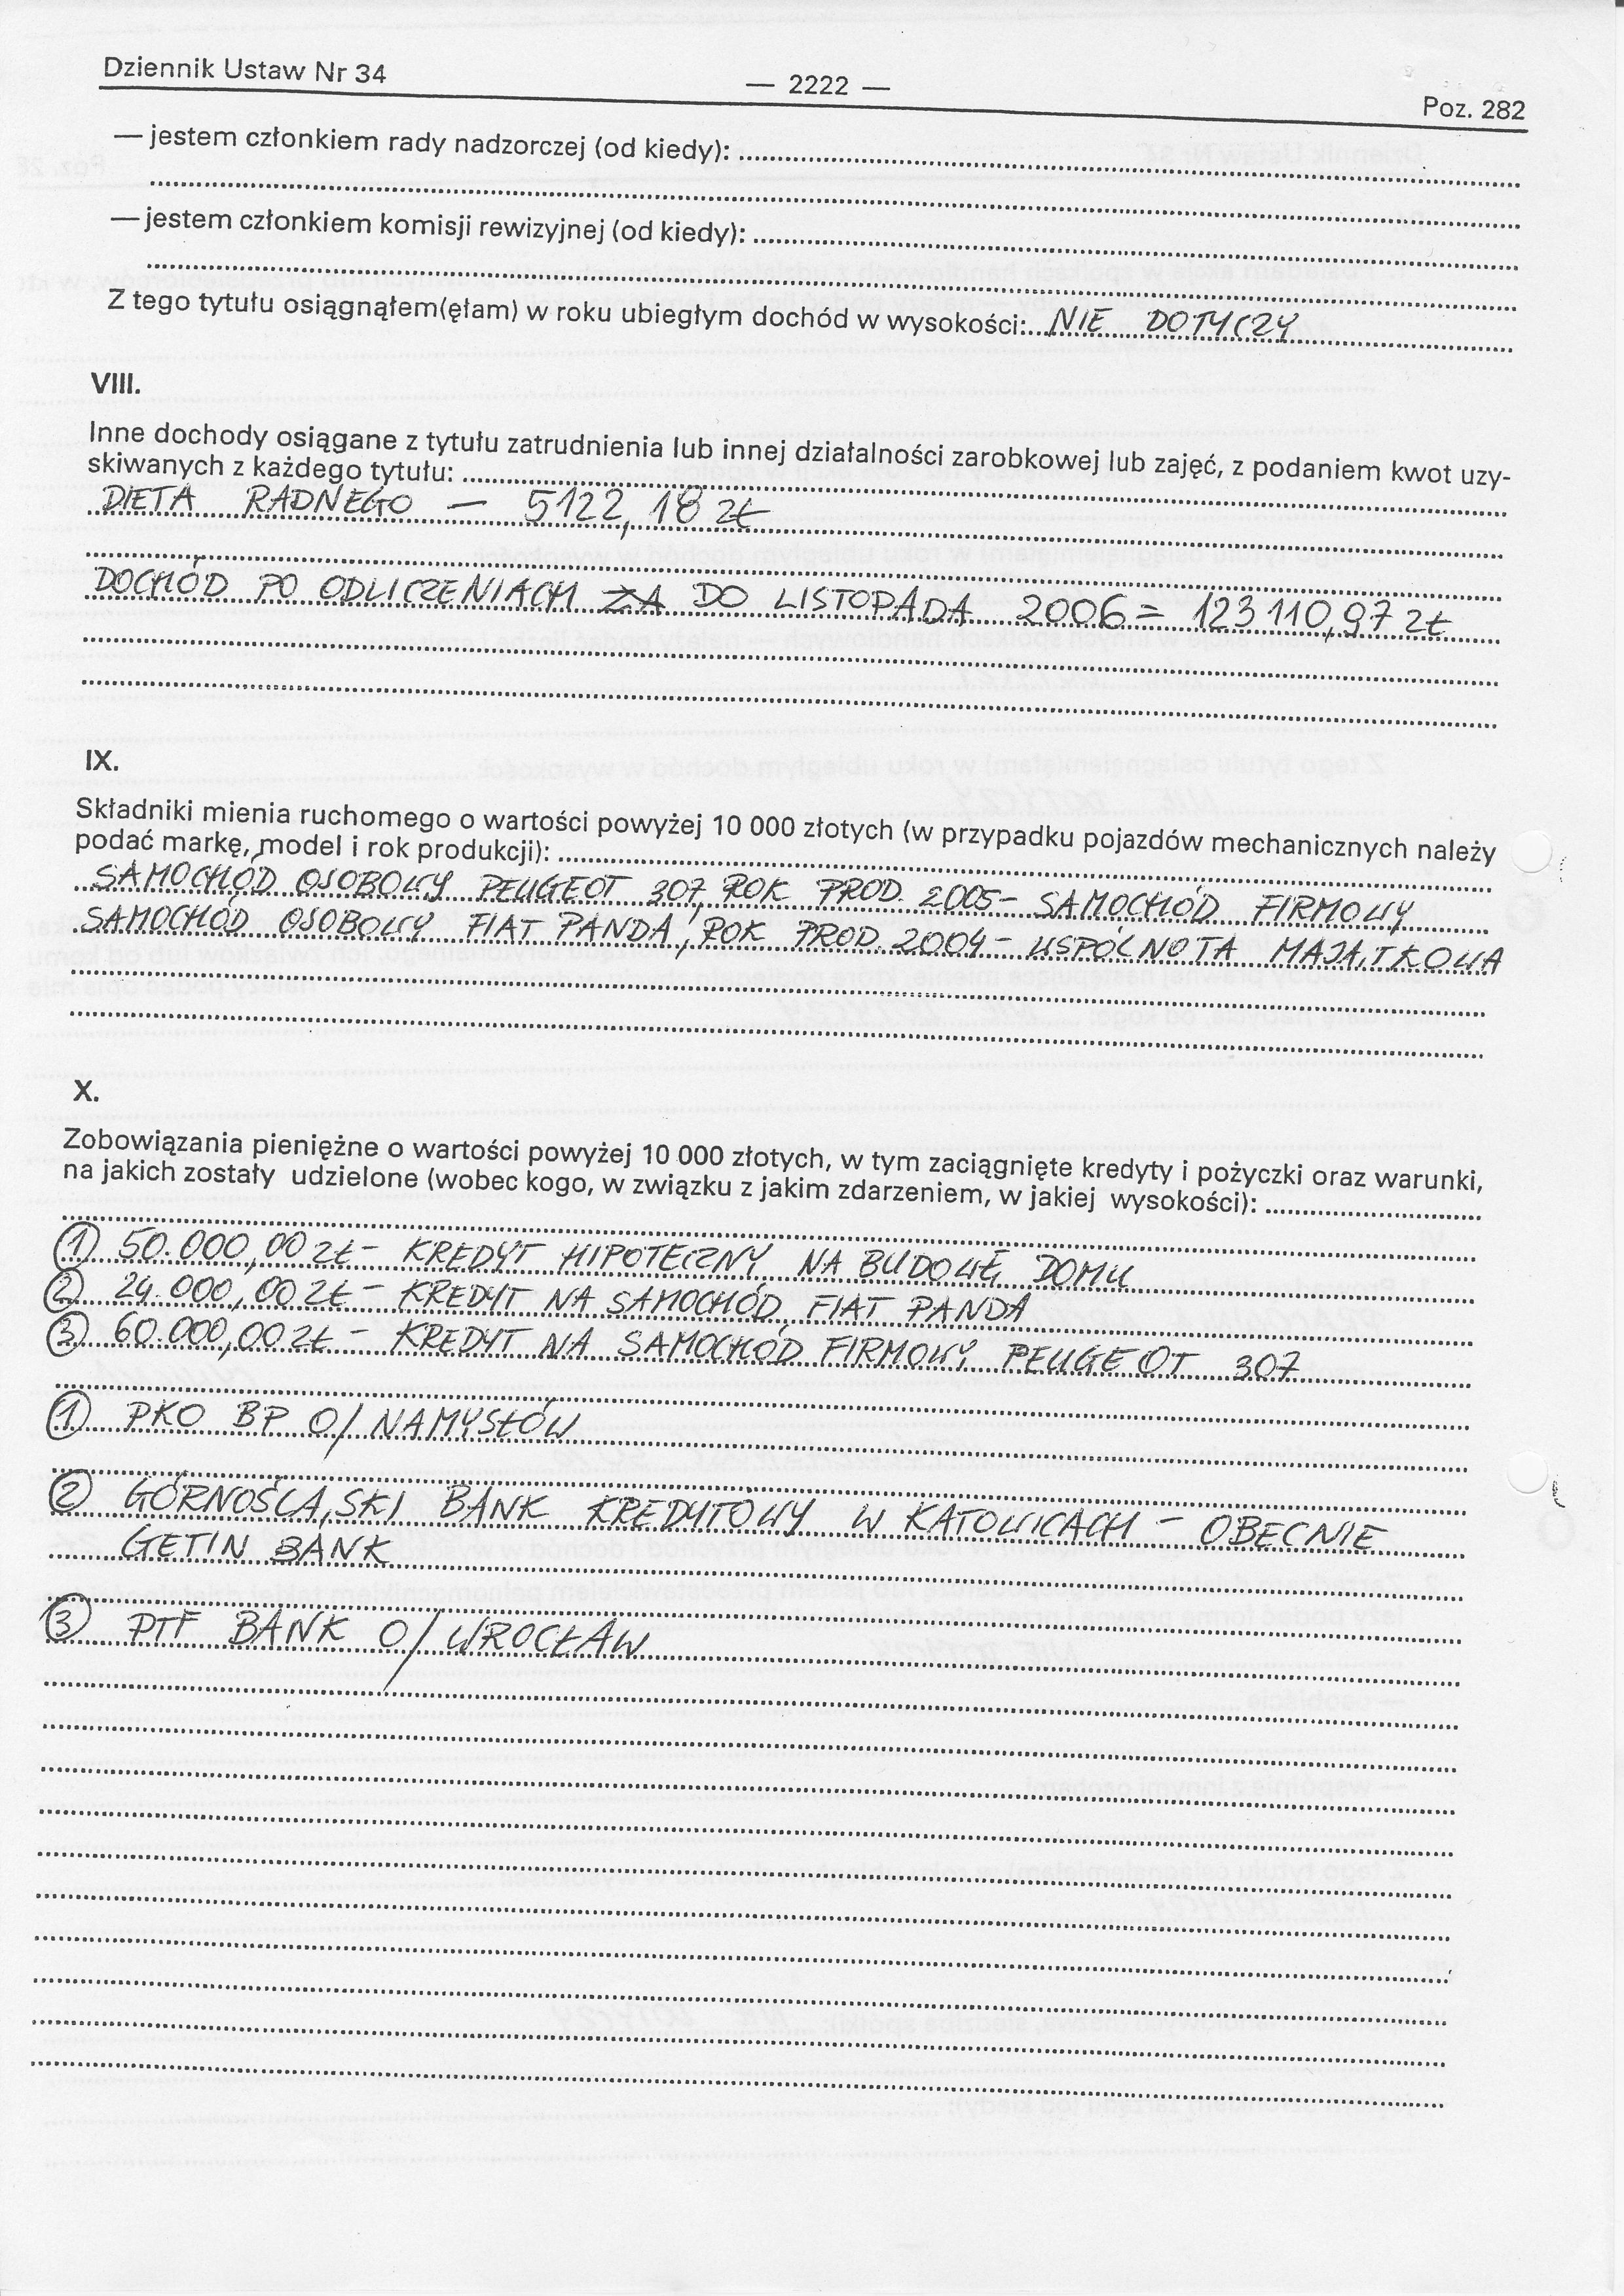 Dziennik Ustaw Nr 34
— 2222 —
Poz. 282
— jestem członkiem rady nadzorczej (od kiedy):
— jestem członkiem komisji rewizyjnej (od kiedy):
Z tego tytułu osiągnąłem(ęłam) w roku ubiegłym dochód w wysokości: NIE DOTYCZY
VIII.
Inne dochody osiągane z tytułu zatrudnienia lub innej działalności zarobkowej lub zajęć, z podaniem kwot uzy-
skiwanych z każdego tytułu:
DIETA RADNEGO — 5122,18 zł
DOCHÓD PO ODLICZENIACH ZA DO LISTOPADA 2006 = 123 110,97 zł
IX.
Składniki mienia ruchomego o wartości powyżej 10 000 złotych (w przypadku pojazdów mechanicznych należy
podać markę, model i rok produkcji):
SAMOCHÓD OSOBOWY PEUGEOT 307, ROK PROD. 2005 - SAMOCHÓD FIRMOWY
SAMOCHÓD OSOBOWY FIAT PANDA, ROK PROD. 2004 - WSPÓLNOTA MAJĄTKOWA
X.
Zobowiązania pieniężne o wartości powyżej 10 000 złotych, w tym zaciągnięte kredyty i pożyczki oraz warunki,
na jakich zostały udzielone (wobec kogo, w związku z jakim zdarzeniem, w jakiej wysokości):
① 50.000,00 zł - KREDYT HIPOTECZNY NA BUDOWĘ DOMU
② 24.000,00 zł - KREDYT NA SAMOCHÓD FIAT PANDA
③ 60.000,00 zł - KREDYT NA SAMOCHÓD FIRMOWY PEUGEOT 307
① PKO BP O/ NAMYSŁÓW
② GÓRNOŚLĄSKI BANK KREDYTOWY W KATOWICACH - OBECNIE
GETIN BANK
③ PTF BANK O/ WROCŁAW